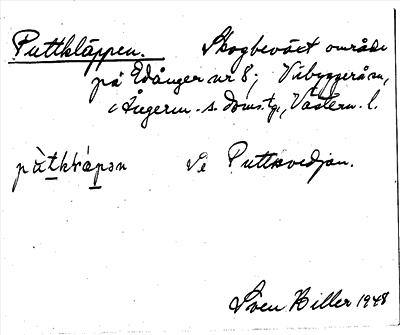 Puttkläppen. Skogbeväxt område
på Edånger nr 8; Vibyggerå sn,
Ångerm. s. doms., Västern. l.
Se Puttsvedjan.
Sven Hiller 1948